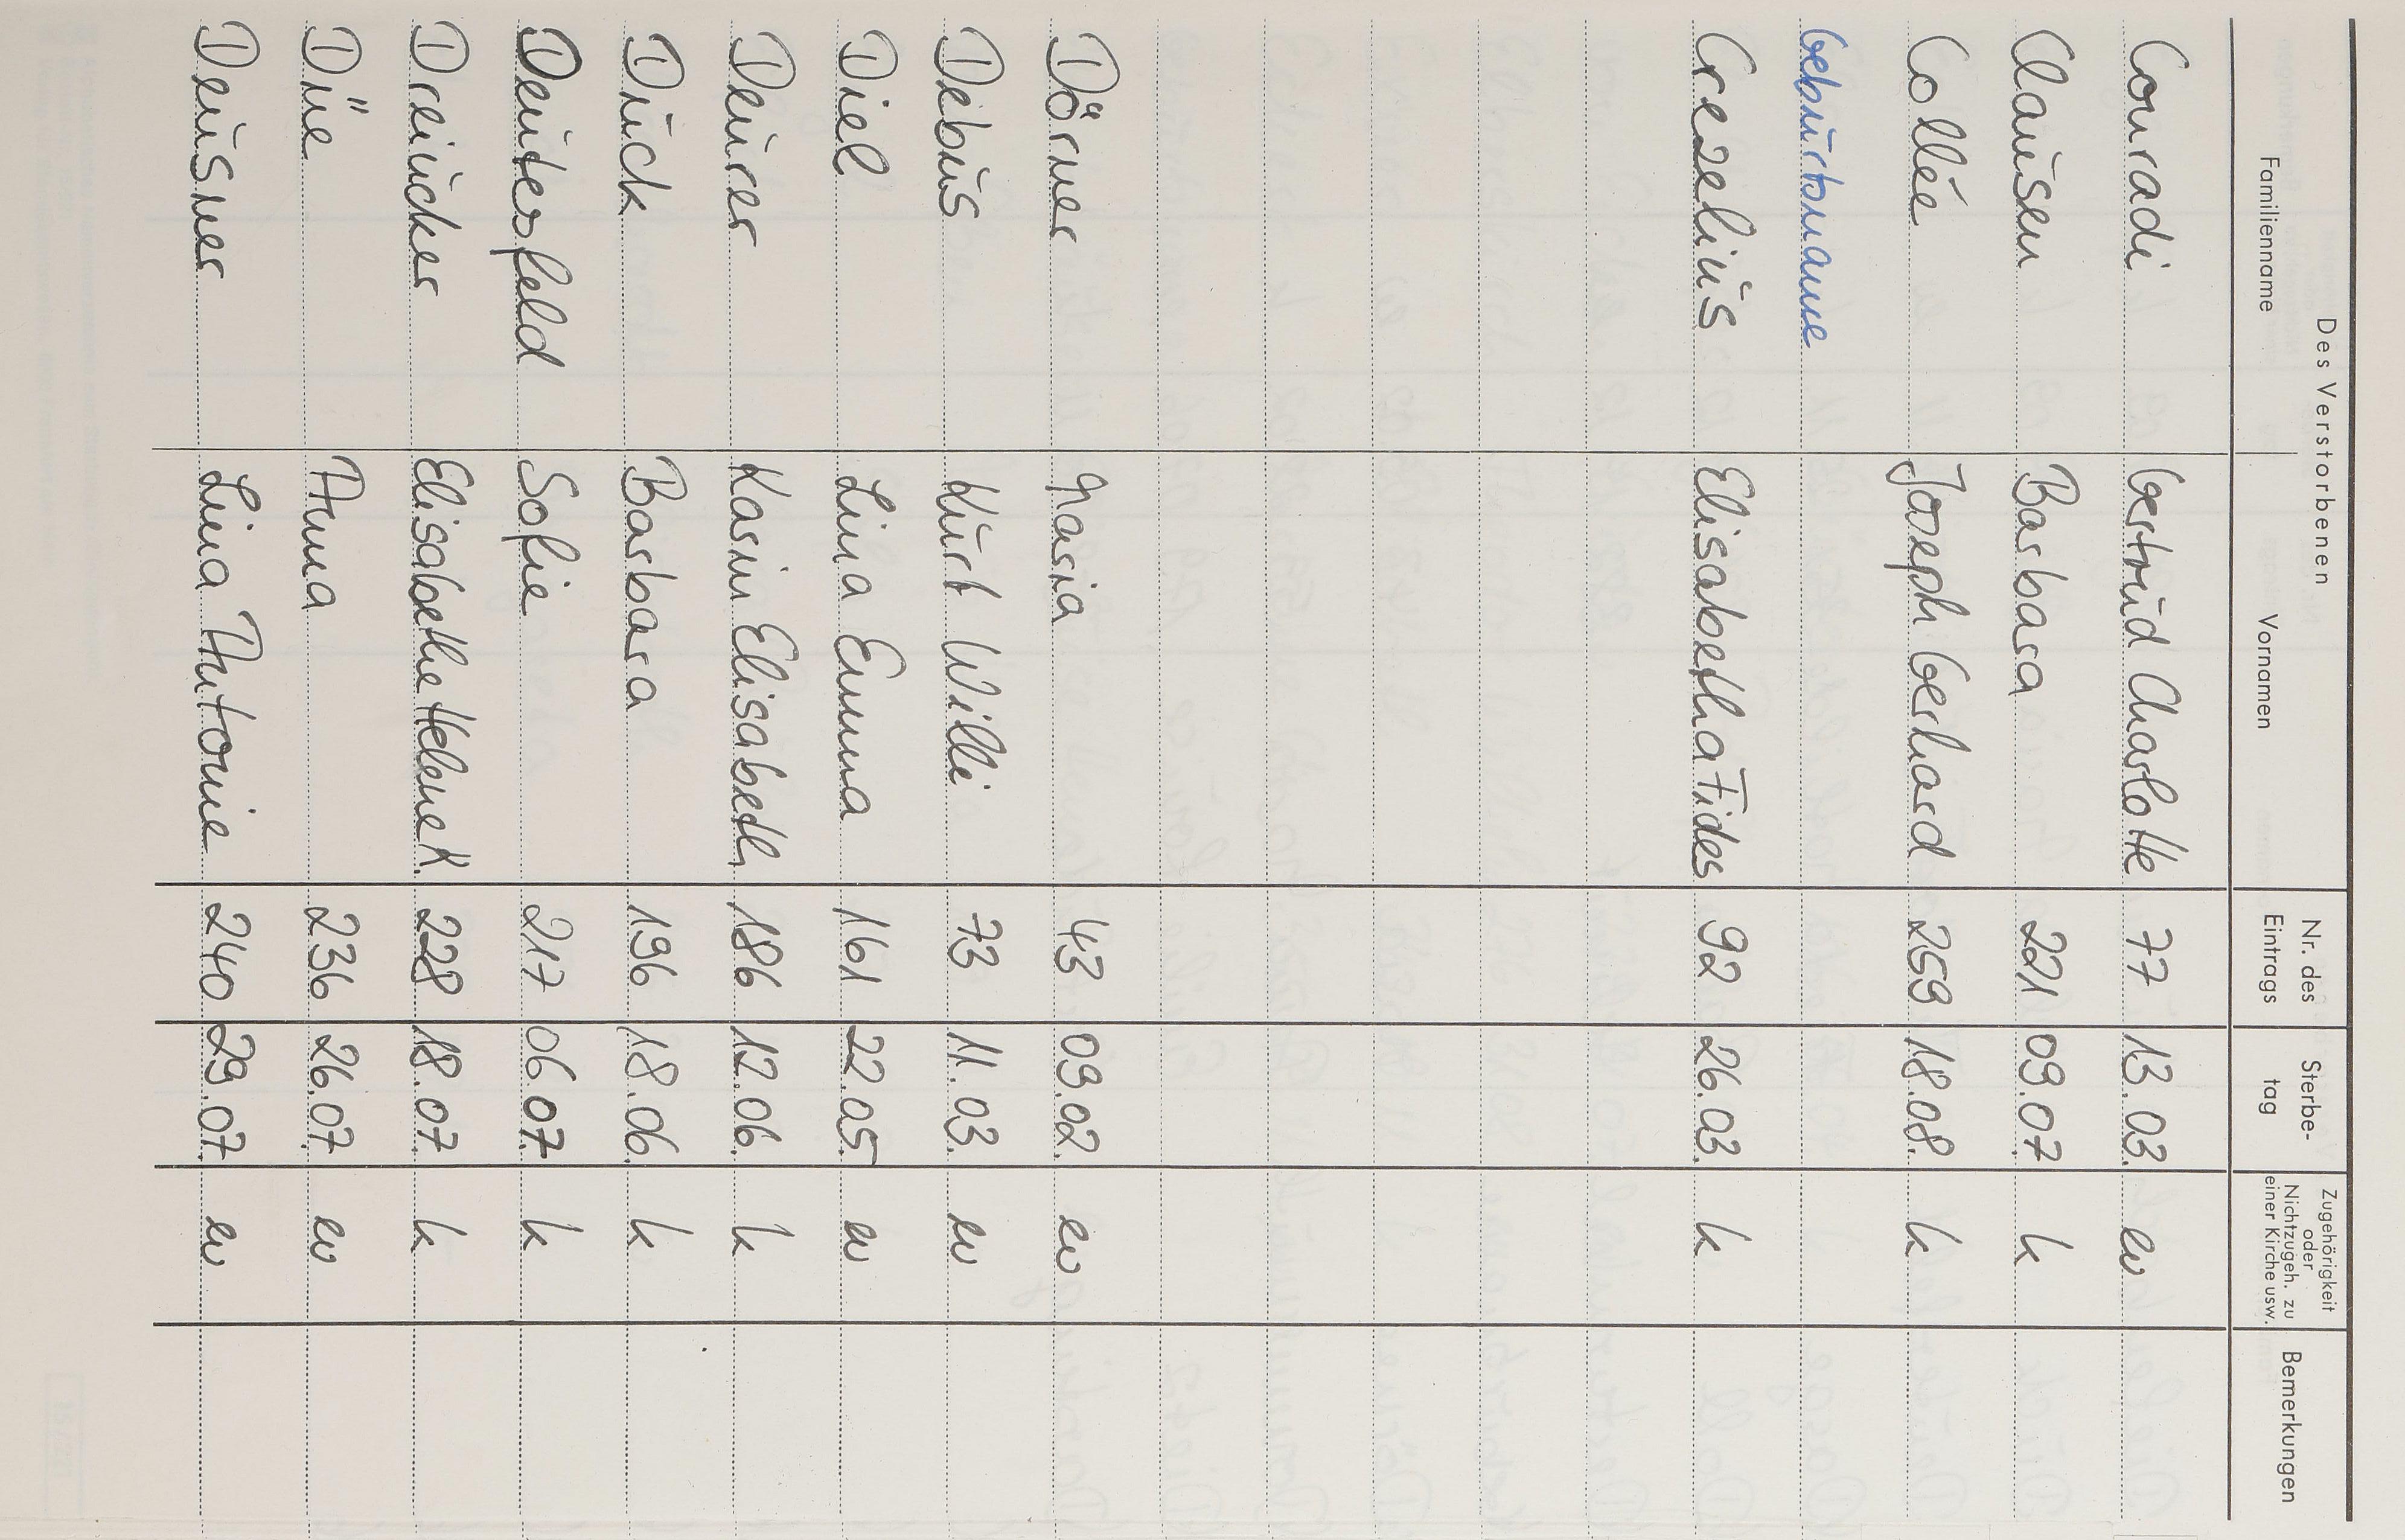 Des Verstorbenen
Familienname Vornamen Nr. des Eintrags Sterbe-tag Zugehörigkeit oder Nichtzugeh. zu einer Kirche usw. Bemerkungen
Conradi Gertrud Charlotte 77 13.03. ev
Clausen Barbara 221 09.07. k
Collée Joseph Gerhard 259 18.08. k
Geburtsname
Crezelius Elisabetha Fides 92 26.03. k
Dörner Maria 43 09.02. ev
Debus Kurt Willi 73 11.03. ev
Diel Lina Emma 161 22.05. ev
Deurer Karin Elisabeth 186 12.06. k
Duck Barbara 196 18.06. k
Deutesfeld Sofie 217 06.07. k
Dreiucker Elisabethe Helene K. 228 18.07. k
Düe Anna 236 26.07. ev
Deusner Lina Antonie 240 29.07. ev